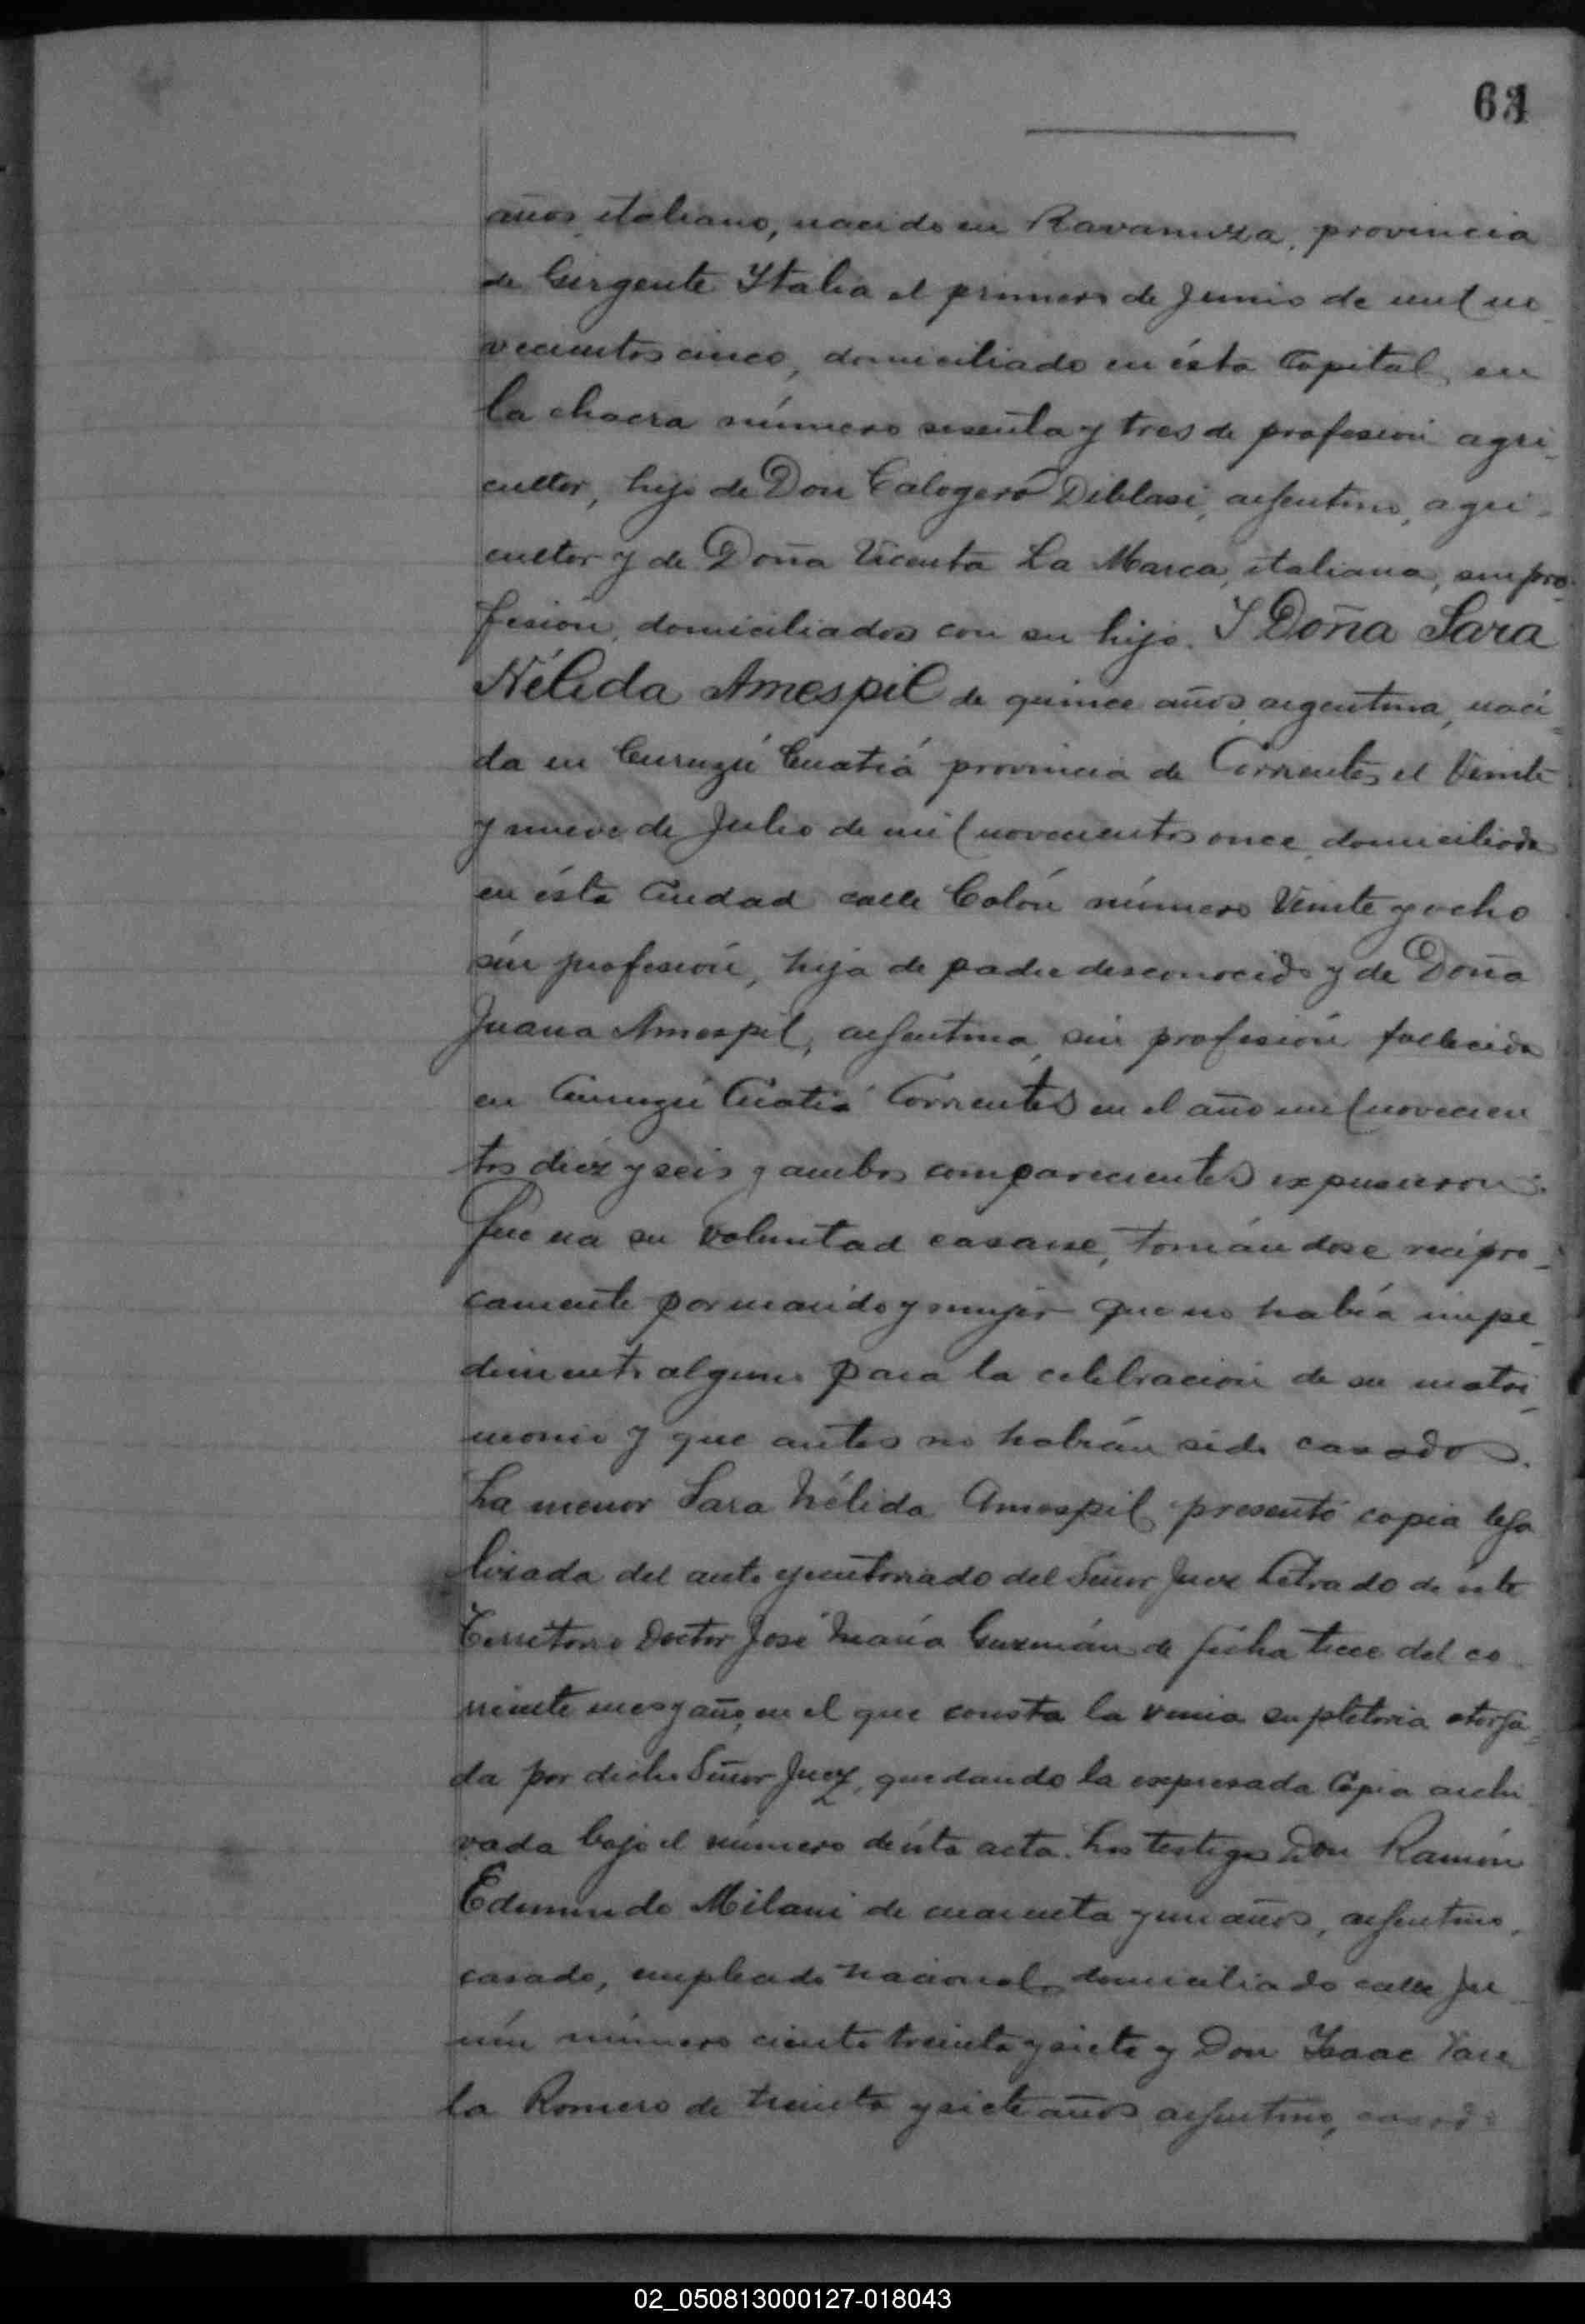 61
años, italiano, nacido en Ravanuza, provincia
de Girgente Italia el primero de Junio de mil no_
vecientos cinco, domiciliado en ésta Capital, en
la chacra número sesenta y tres de profesión agri_
cultor, hijo de Don Calogero Diblasi, argentino, agri_
cultor y de Doña Vicenta La Marca, italiana, sin pro_
fesión, domiciliados con su hijo. Y Doña Sara
Nélida Amespil de quince años, argentina, naci_
da en Curuzú Cuatiá provincia de Corrientes el Veinte
y nueve de Julio de mil novecientos once, domiciliada
en ésta Ciudad calle Colón número Veinte y ocho
sin profesión, hija de padre desconocido y de Doña
Juana Amespil, argentina, sin profesión fallecida
en Curuzú Cuatiá Corrientes en el año mil novecien
tos diez y seis y ambos comparecientes expusieron:
Que era su voluntad casarse, tomándose recípro_
camente por marido y mujer que no había impe_
dimento alguno para la celebración de su matri_
monio y que antes no habían sido casados.
La menor Sara Nélida Amespil presentó copia lega
lizada del auto ejecutoriado del Señor Juez Letrado de éste
Territorio Doctor José María Guzmán de fecha trece del co_
rriente mes y año, en el que consta la venia supletoria otorga_
da por dicho Señor Juez, quedando la expresada Copia archi_
vada bajo el número de ésta acta. Los testigos Don Ramón
Edmundo Milani de cuarenta y un años, argentino,
casado, empleado nacional, domiciliado calle Ju_
nín número ciento treinta y siete y Don Isaac Vare
la Romero de treinta y siete años argentino, casado
02_050813000127-018043